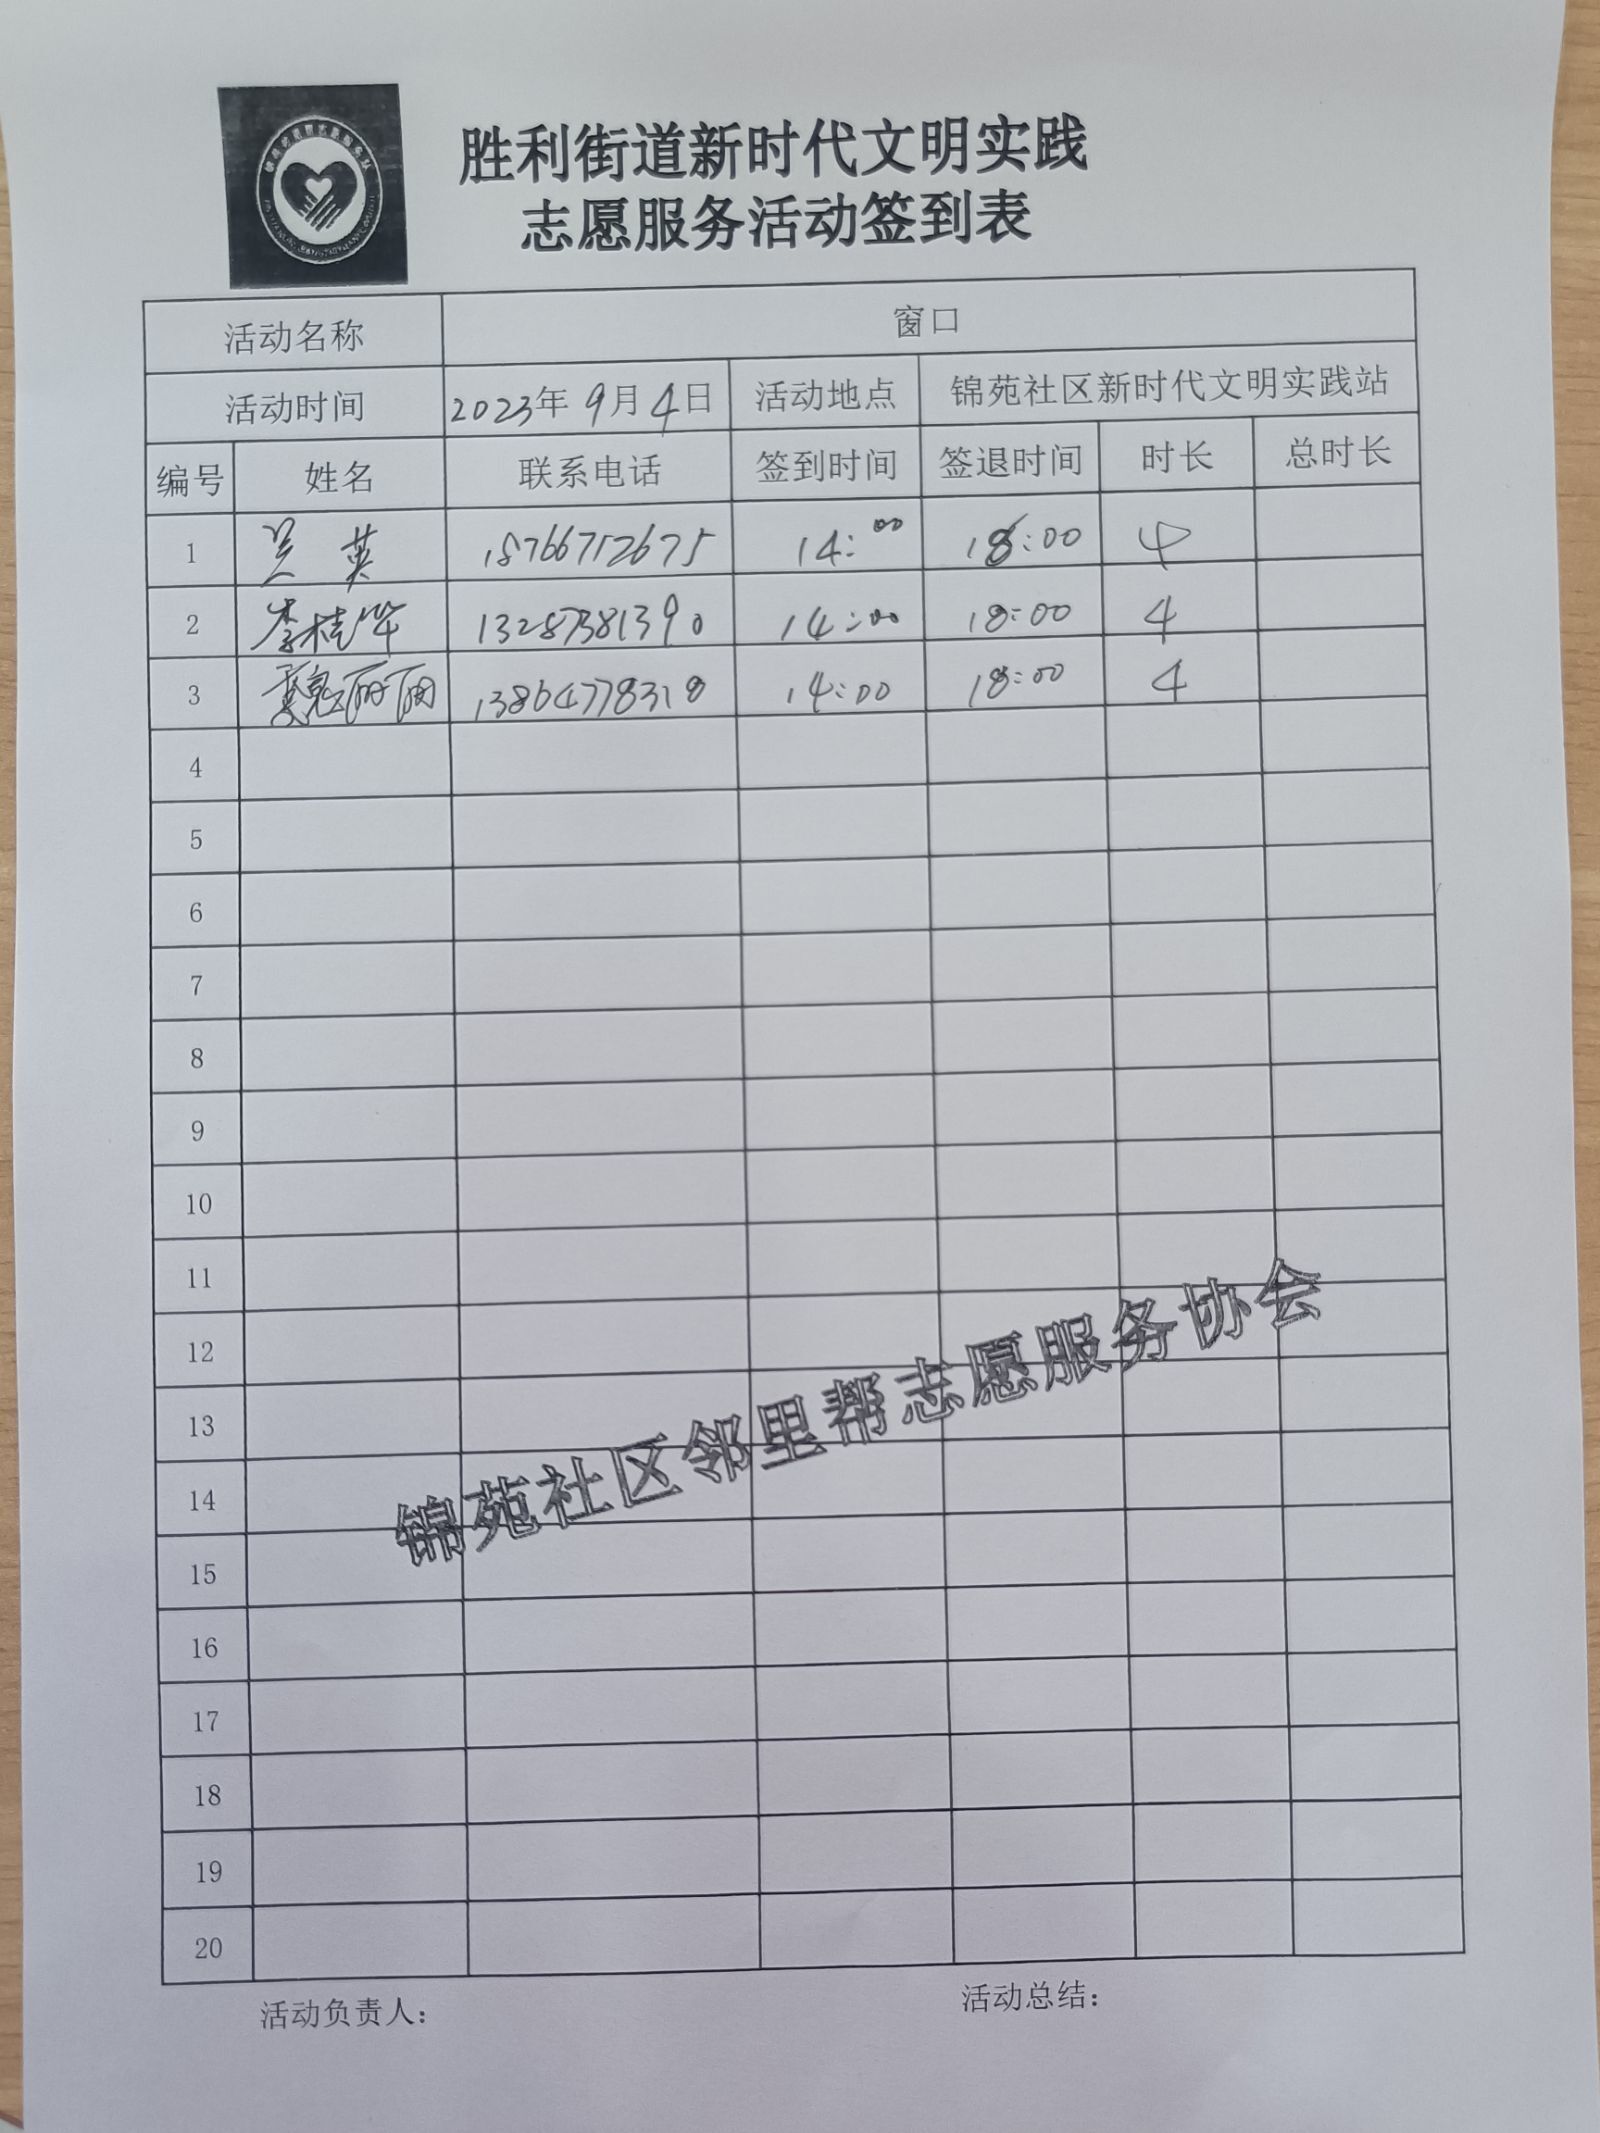 胜利街道新时代文明实践
志愿服务活动签到表
活动名称 窗口
活动时间 2023年9月4日 活动地点 锦苑社区新时代文明实践站
编号 姓名 联系电话 签到时间 签退时间 时长 总时长
1 吴英 18766712675 14:00 18:00 4
2 李桂华 13287381390 14:00 18:00 4
3 魏丽丽 13864778318 14:00 18:00 4
4
5
6
7
8
9
10
11
12
13
14
15
16
17
18
19
20
锦苑社区邻里帮志愿服务协会
活动负责人: 活动总结: